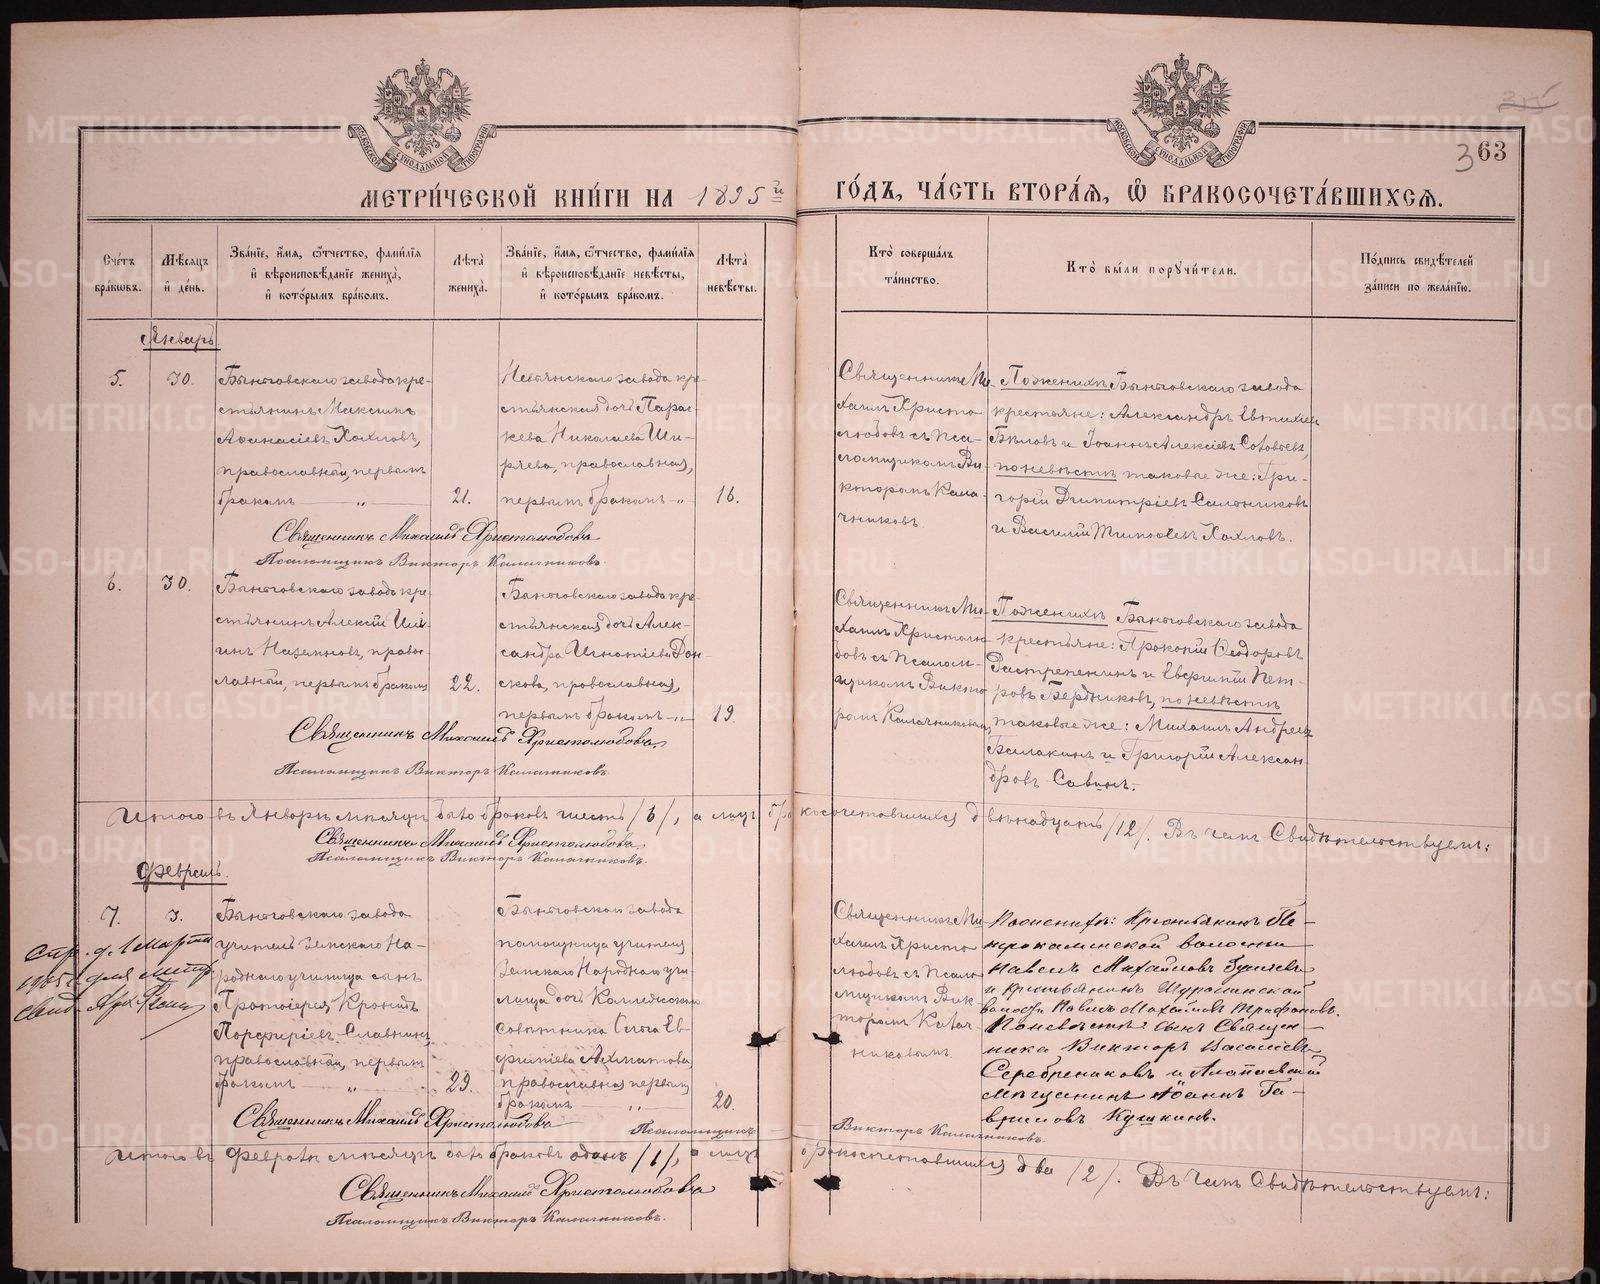 МЕТРИ́ЧЕСКОЙ КНИ́ГИ НА 1895 й ГО́ДЪ, ЧА́СТЬ ВТОРА́Я, Ѡ҆ БРАКОСОЧЕТА́ВШИХСЯ.
363
Сче́тъ бра́кѡвъ.
Мѣ́сяцъ и҆ де́нь.
Зва́нїе, и҆́мя, ѻ҆́тчество, фами́лїя и҆ вѣроисповѣ́данїе жениха̀, и҆ кото́рымъ бра́комъ.
Лѣта̀ жениха̀.
Зва́нїе, и҆́мя, ѻ҆́тчество, фами́лїя и҆ вѣроисповѣ́данїе невѣ́сты, и҆ кото́рымъ бра́комъ.
Лѣта̀ невѣ́сты.
Кто̀ соверша́лъ та́инство.
Кто̀ бы́ли порꙋчи́тели.
По́дпись свидѣ́телей за́писи по жела́нїю.
Январь
5.
30.
Быньговскаго завода кре-
стьянинъ Максимъ
Аѳанасіевъ Хохловъ,
православный, первымъ
бракомъ — „
21.
Невьянскаго завода кре-
стьянская дочь Парас-
кева Николаева Ши-
ряева, православная,
первымъ бракомъ - „
16.
Священникъ Ми-
хаилъ Христо
любовъ съ Пса-
ломщикомъ Ви-
кторомъ Кала-
чниковъ
По женихѣ Быньговскаго завода
крестьяне: Александръ Евтихіевъ
Бѣловъ и Іоаннъ Алексіевъ
по невѣстѣ таковые же: Гри-
горій Димитріевъ
и Василій Тимоѳеевъ Хохловъ.
Священникъ Михаилъ Христолюбовъ
Псаломщикъ Викторъ Калачниковъ.
6.
30.
Быньговскаго завода кре-
стьянинъ Алексій Иль-
инъ Назаиновъ, право-
славный, первымъ бракомъ
22.
Быньговскаго завода кре-
стьянская дочь Алек-
сандра Игнатіева Дон-
скова, православная,
первымъ бракомъ - „
19.
Священникъ Ми-
хаилъ Христолю
бовъ съ Псалом-
щикомъ Викто
ромъ Калачниковымъ,
По женихѣ Быньговскаго завода
крестьяне: Прокопій Ѳеодоровъ
Растрепенинъ и Евгеній Пет-
ровъ Бердниковъ, по невѣстѣ
таковые же: Михаилъ Андреевъ
Балакинъ и Григорій Алексан-
дровъ Савинъ.
Священникъ Михаилъ Христолюбовъ.
Псаломщикъ Викторъ Калачниковъ
Итого въ Январѣ мѣсяцѣ было браковъ шесть /6/, а лицъ бракосочетавшихся двѣнадцать /12/. Въ чемъ Свидѣтельствуемъ:
Священникъ Михаилъ Христолюбовъ.
Псаломщикъ Викторъ Калачниковъ.
Февраль.
7.
3.
Быньговскаго завода
учитель Земскаго На-
роднаго училища сынъ
Протоіерея, Кронидъ
Порфиріевъ Славнинъ,
православный, первымъ
бракомъ — „
29.
Быньговскаго завода
помощница учителя
Земскаго Народнаго учи-
лища дочь Коллежскаго
совѣтника Ольга Ев-
фиміева Ахматова,
православная, первымъ
бракомъ — „ —
20.
Священникъ Ми
хаилъ Христо
любовъ съ Псало
мщикомъ Вик-
торомъ Калач-
никовымъ.
По женихѣ: Крестьянинъ Пе-
трокаменской волости
Павелъ Михайловъ
и крестьянинъ Шуралинской
волости Павелъ Михайловъ Трифановъ.
По невѣстѣ: сынъ Священ-
ника Викторъ Васильевъ
Серебрениковъ и Алапаевскій
мѣщанинъ Іоаннъ Га-
вриловъ Кушкинъ.
1 Марта
Священникъ Михаилъ Христолюбовъ
Псаломщикъ Викторъ Калачниковъ.
Итого въ Февралѣ мѣсяцѣ было браковъ одинъ /1/, а лицъ бракосочетавшихся два /2/. Въ чемъ Свидѣтельствуемъ:
Священникъ Михаилъ Христолюбовъ
Псаломщикъ Викторъ Калачниковъ.
METRIKI.GASO-URAL.RU